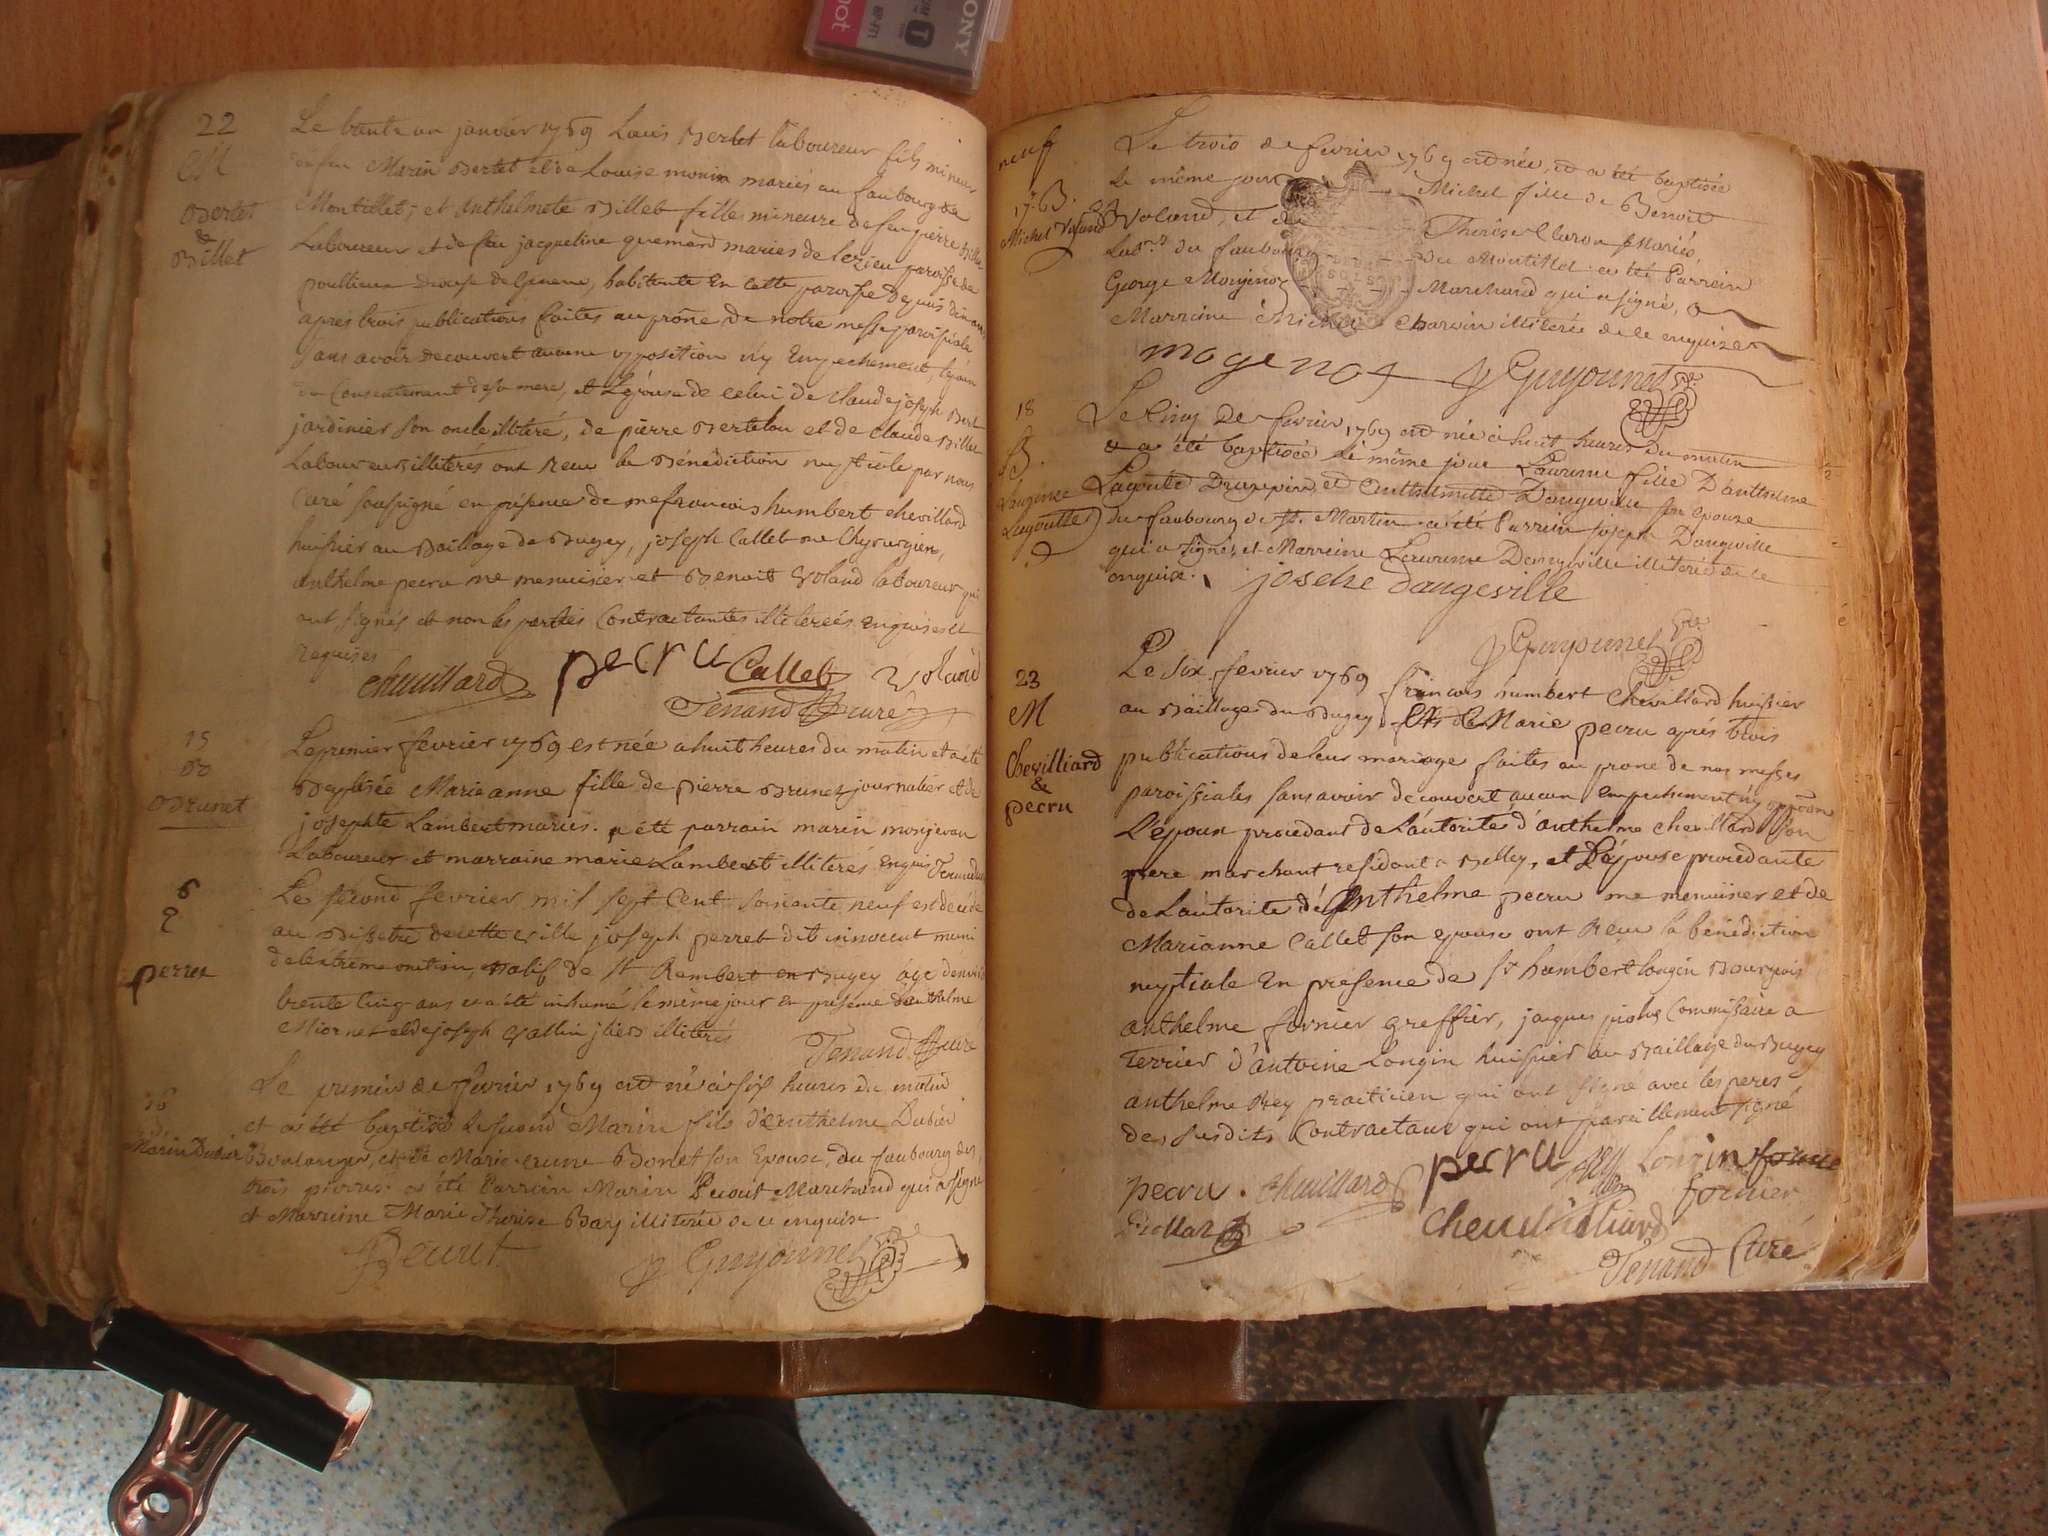 SONY
22
M
Bertet
&
Billet
Le trente un janvier 1769 Louis Bertet laboureur fils mineur
de feu Marin Bertet et de Louise monin mariés au faubourg de
Montillet; et Anthelmete Billet fille mineure de feu pierre Billet
Laboureur et de feu jacqueline quemard mariés de lezieu paroisse de
habitante En cette paroisse depuis
apres trois publications faites au prône de notre messe paroissiale
sans avoir decouvert aucune opposition n'y Empechement,
du Consentement de sa mere, et L'épouse de celui de Claude joseph
jardinier son oncle illiteré, de pierre Bertelon et de Claude Billet
Laboureurs illiterés ont Reçu la Bénédiction nuptiale par nous
Curé soussigné en présence de me françois humbert chevillard
huissier au Bailliage de Bugey, joseph Callet me Chyrurgien,
anthelme pecru me menuisier et Benoit Voland laboureur qui
ont signés et non les parties Contractantes illiterées Enquises et
Requises
chevillard pecru Callet Voland
Tenand Curé
15
B
Brunet
Le premier fevrier 1769 est née a huit heures du matin et a été
Baptisée Marieanne fille de pierre Brunet journalier et de
josephte Lambert mariés. a été parrain marin monjevan
Laboureur et marraine marie Lambert illiterés Enquis Tenand
6
perret
Le second fevrier mil sept Cent soixante neuf est décédé
au de cette ville joseph perret dit innocent muni
de l'extreme onction, natif de St Rambert en Bugey âgé d'environ
trente Cinq ans et a été inhumé le même jour en présence d'anthelme
et de joseph illiterés
Tenand Curé
16
Marin Dubier
Le premier de fevrier 1769 est né à six heures du matin
et a été baptisé Le second Marin fils d'Anthelme Dubier
Boulanger, et de Marie Bonet son Epouse, du faubourg des
trois a été Parrein Marin Peiout Marchand qui a signé
et Marreine Marie Therese Bary illiterée de ce enquise
Guyonnet
neuf
17. B.
Michel Voland
Le trois de fevrier 1769 est née, et a été baptisée
le même jour Michel fille de Benoit
Voland, et de Thérèse Mariés,
Labrs du faubourg du Montillet a été Parrein
George Mouginot Marchand qui a signé,
Marreine illiterée de ce enquise
mogenot Guyonnet
18
B.
Laurence
Lagoutte
Le Cinq De fevrier 1769 est née à huit heures du matin
et a été baptisée le même jour Laurence fille D'anthelme
Lagoutte et Anthelmette Dangeville son épouse
du faubourg de St. Martin a été Parrein Joseph Dangeville
qui a signé, et Marreine Laurence Dangeville illiterée de ce
enquise.
josephe dangeville
Guyonnet
23
M
Chevilliard
&
pecru
Le six fevrier 1769 françois humbert Chevillard huissier
au Bailliage du Bugey et Marie pecru aprés trois
publications de leur mariage faites au prone de nos messes
paroissiales sans avoir découvert aucun empechement n'y oppôon
L'epoux procedant de L'autorité d'anthelme chevillard son
pere marchant residant a Belley, et L'épouse procedante
de L'autorité d'Anthelme pecru me menuisier et de
Marianne Callet son epouse ont Reçu la bénédiction
nuptiale En présence de sr humbert longin Bourgeois
anthelme fornier greffier, jacques Commissaire a
Terrier d'antoine Longin huissier au Bailliage du Bugey
anthelme Rey praticien qui ont signé avec les peres
des susdits Contractans qui ont pareillement signé
pecru. chevillard pecru Rey Longin
fornier
chevilliard
Tenand Curé